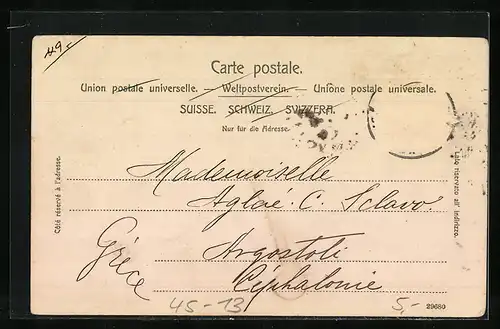 49.-
Carte postale.
Union postale universelle. — Weltpostverein. — Unione postale universale.
SUISSE. SCHWEIZ. SVIZZERA.
Nur für die Adresse.
Côté réservé à l'adresse.
Lato riservato all' indirizzo.
Mademoiselle
Aglaé. C. Sclavo.
Argostoli
Grèce
Céphalonie
45-13
5,-
29680